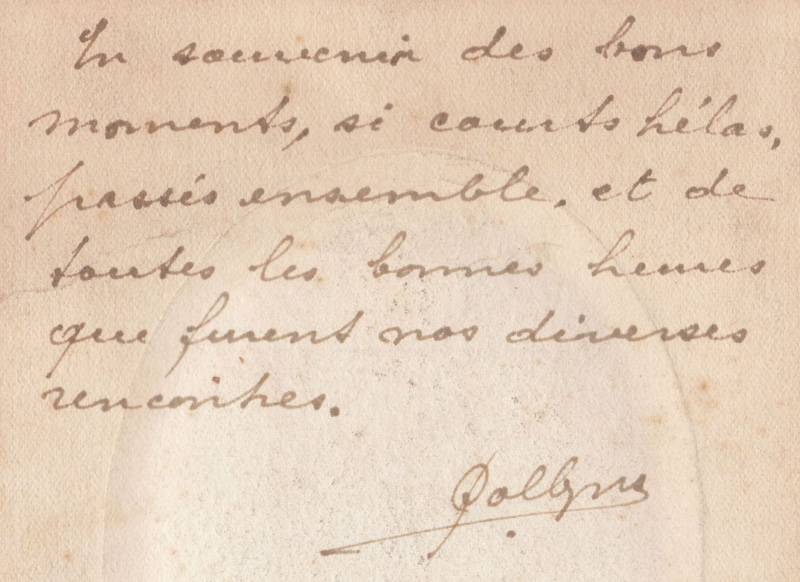 En souvenir des bons
moments, si courts hélas,
passés ensemble, et de
toutes les bonnes heures
que furent nos diverses
rencontres.